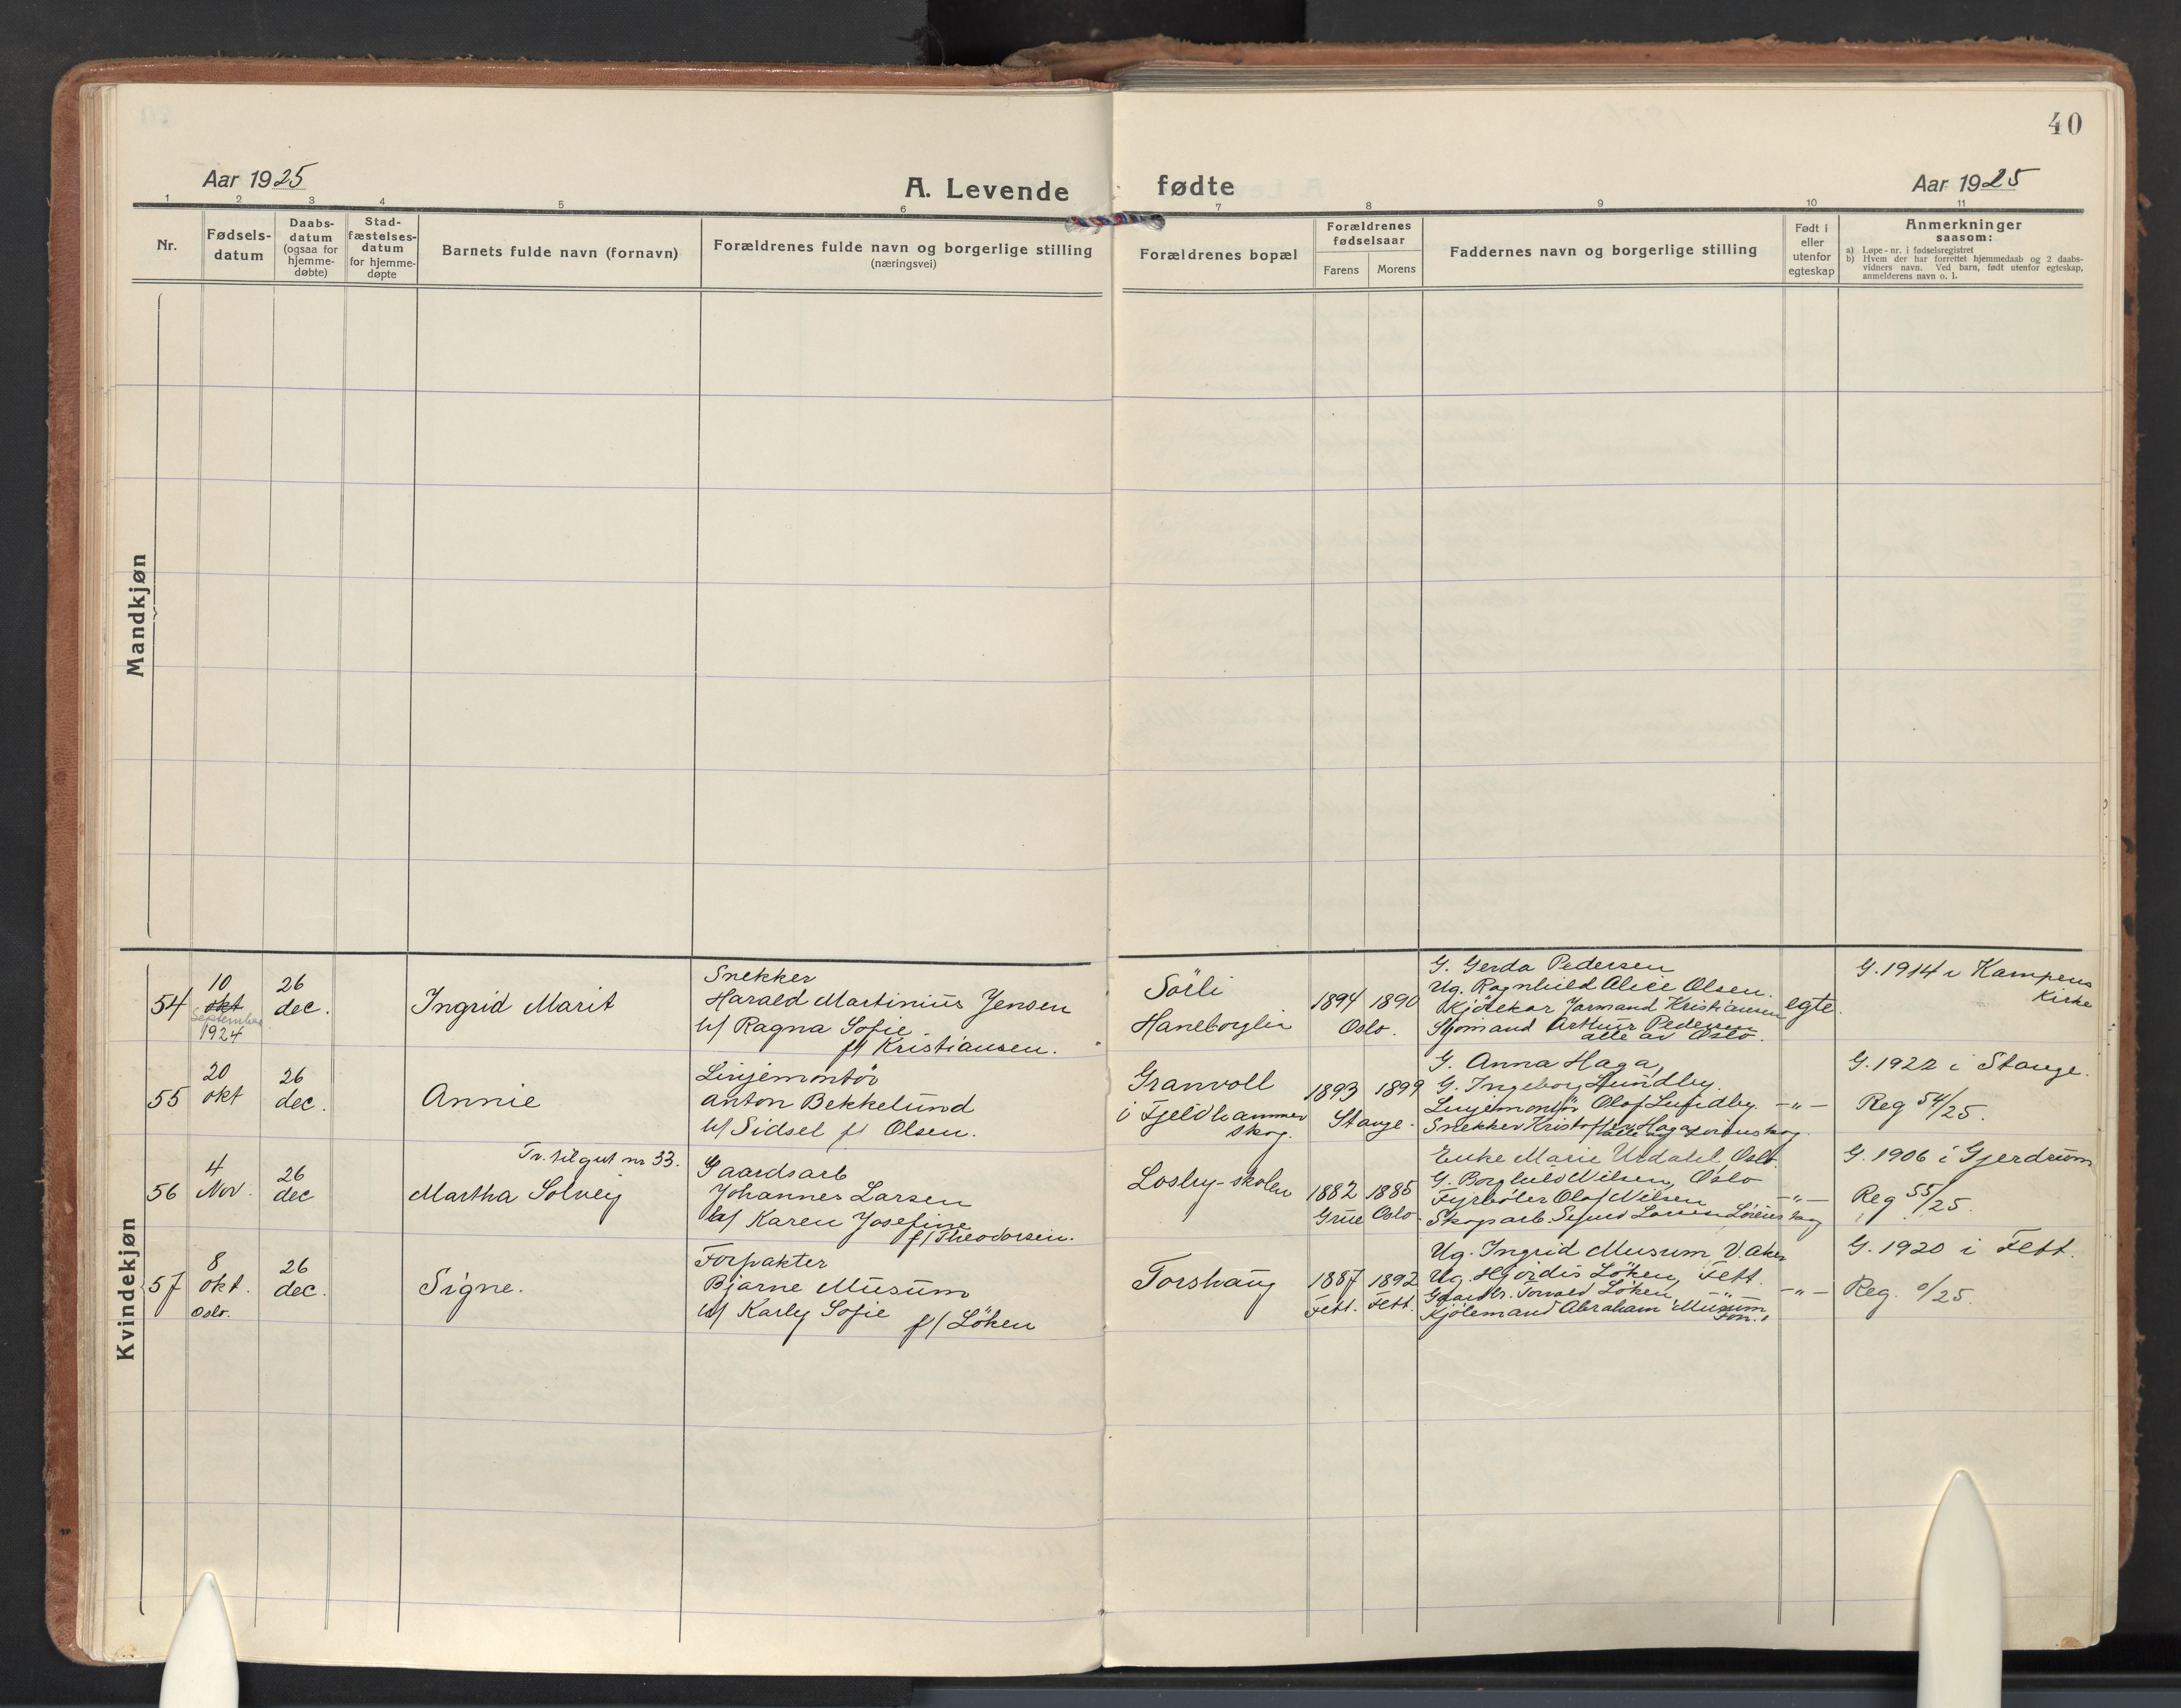 40
Aar 1925
A. Levende fødte
Aar 1925
1 2 3 4 5 6 7 8 9 10 11
Nr.
Fødsels-
datum
Daabs-
datum
(ogsaa for
hjemme-
døbte)
Stad-
fæstelses-
datum
for hjemme-
døpte
Barnets fulde navn (fornavn)
Forældrenes fulde navn og borgerlige stilling
(næringsvei)
Forældrenes bopæl
Forældrenes
fødselsaar
Farens
Morens
Faddernes navn og borgerlige stilling
Født i
eller
utenfor
egteskap
Anmerkninger
saasom:
a) Løpe-nr. i fødselsregistret
b) Hvem der har forrettet hjemmedaab og 2 daabs-
vidners navn. Ved barn, født utenfor egteskap,
anmelderens navn o. l.
Mandkjøn
Kvindekjøn
54
10
okt
September
1924
26
dec.
Ingrid Marit
Snekker
Harald Martinius Jensen
h/ Ragna Sofie
f/ Kristiansen.
Sörli
Haneborglia
1894 1890
Oslo.
G. Gerda Pedersen
Ug. Ragnhild Alice Olsen.
Kristiansen
Sjömand Arthur Pedersen
alle av Oslo.
egte.
G. 1914 i Kampens
Kirke
55
20
okt
26
dec.
Annie
Linjemontör
Anton Bekkelund
h/ Sidsel f/ Olsen.
Granvoll
i Fjeldhammer
skog.
1893 1899
Stange.
G. Anna Haga,
G. Ingeborg Lundby.
Linjemontör Olof Lundby.
Snekker Kristoffer Haga
alle av Lörenskog.
-"-
G. 1922 i Stange.
Reg 54/25.
Tv. til gut nr 33.
56
4
Nov.
26
dec
Martha Solveig
Gaardsarb
Johannes Larsen
h/ Karen Josefine
f/ Theodorsen.
Losby-skolen
1882 1885
Grue Oslo.
Enke Marie Urdahl, Oslo.
G. Borghild Nilsen, Oslo
Fyrböter Olaf Nilsen
Skogsarb. Larsen Lörenskog
-"-
G. 1906 i Gjerdrum
Reg 55/25.
57
8
okt.
Oslo.
26
dec.
Signe.
Forpakter
Bjarne Musum
h/ Karly Sofie
f/ Löken
Torshaug
1887 1892
Fett. Fett.
Ug. Ingrid Musum V. Aker
Ug. Hjördis Löken, Fett.
Gaardbr. Torvald Löken "
Kjölemand Abraham Musum
-"-
G. 1920 i Fett.
Reg. 0/25.